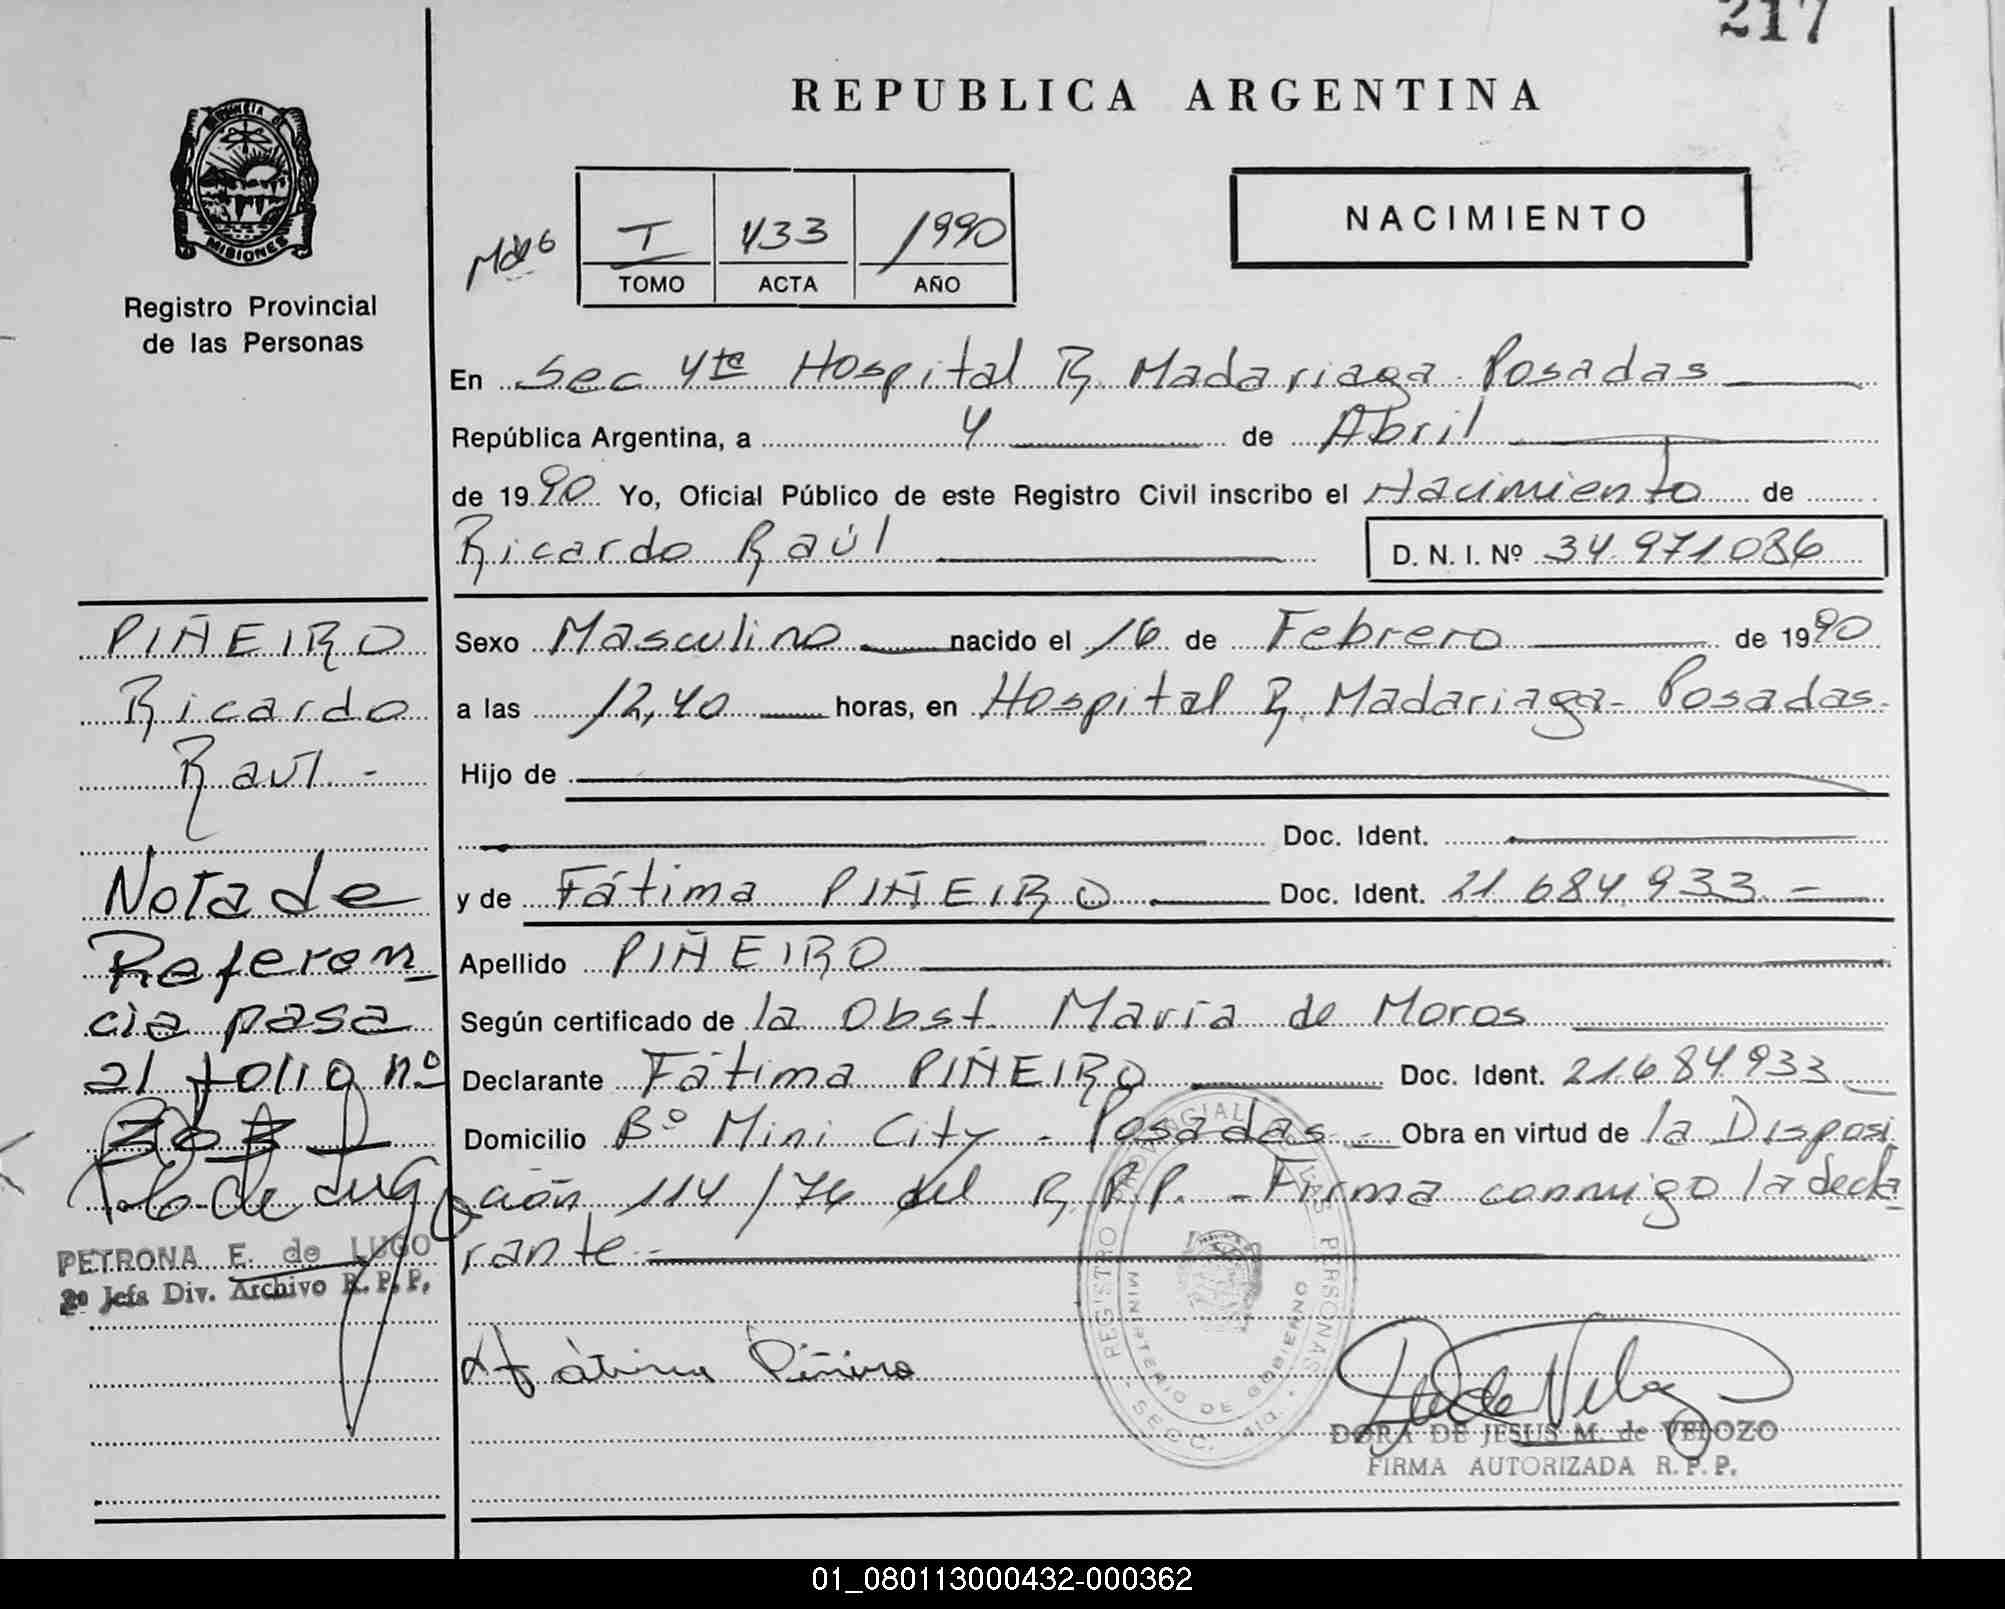 217
REPUBLICA ARGENTINA
PROVINCIA DE
MISIONES
Registro Provincial
de las Personas
I 433 1990
TOMO ACTA AÑO
NACIMIENTO
En Sec 4ta Hospital R. Madariaga Posadas
República Argentina, a 4 de Abril
de 1990 Yo, Oficial Público de este Registro Civil inscribo el Nacimiento de
Ricardo Raúl D. N. I. Nº 34.971.086
PIÑEIRO
Ricardo
Raúl.-
Sexo Masculino nacido el 16 de Febrero de 1990
a las 12,40 horas, en Hospital R. Madariaga- Posadas.
Hijo de
Doc. Ident.
y de Fátima PIÑEIRO Doc. Ident. 21.684.933.-
Apellido PIÑEIRO
Según certificado de la Obst. María de Moros
Declarante Fátima PIÑEIRO Doc. Ident. 21.684.933
Domicilio Bº Mini City - Posadas.- Obra en virtud de la Disposi
ción 114/76 del R.P.P. - Firma conmigo la decla
rante.-
Nota de
Referen-
cia pasa
al folio nº
PETRONA E. de LUGO
2ª Jefa Div. Archivo R.P.P.
Fátima Piñeiro
REGISTRO PROVINCIAL DE LAS PERSONAS
MINISTERIO DE GOBIERNO
- SECC. 4ta. -
DORA DE JESUS M. de VELOZO
FIRMA AUTORIZADA R.P.P.
01_080113000432-000362